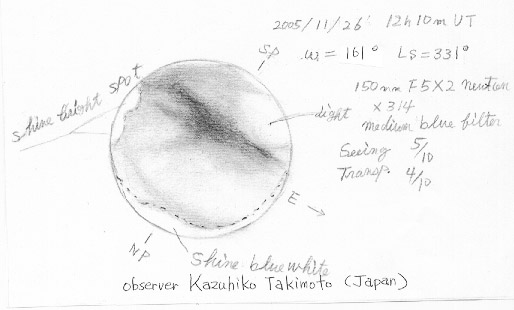 2005/11/26 12h10m UT
SP
ω = 161° LS=331°
Shine bright spot
150mm F5X2 Newton
x314
light
medium blue filter
Seeing 5/10
Transp. 4/10
E
NP
Shine bluewhite
observer Kazuhiko Takimoto (Japan)